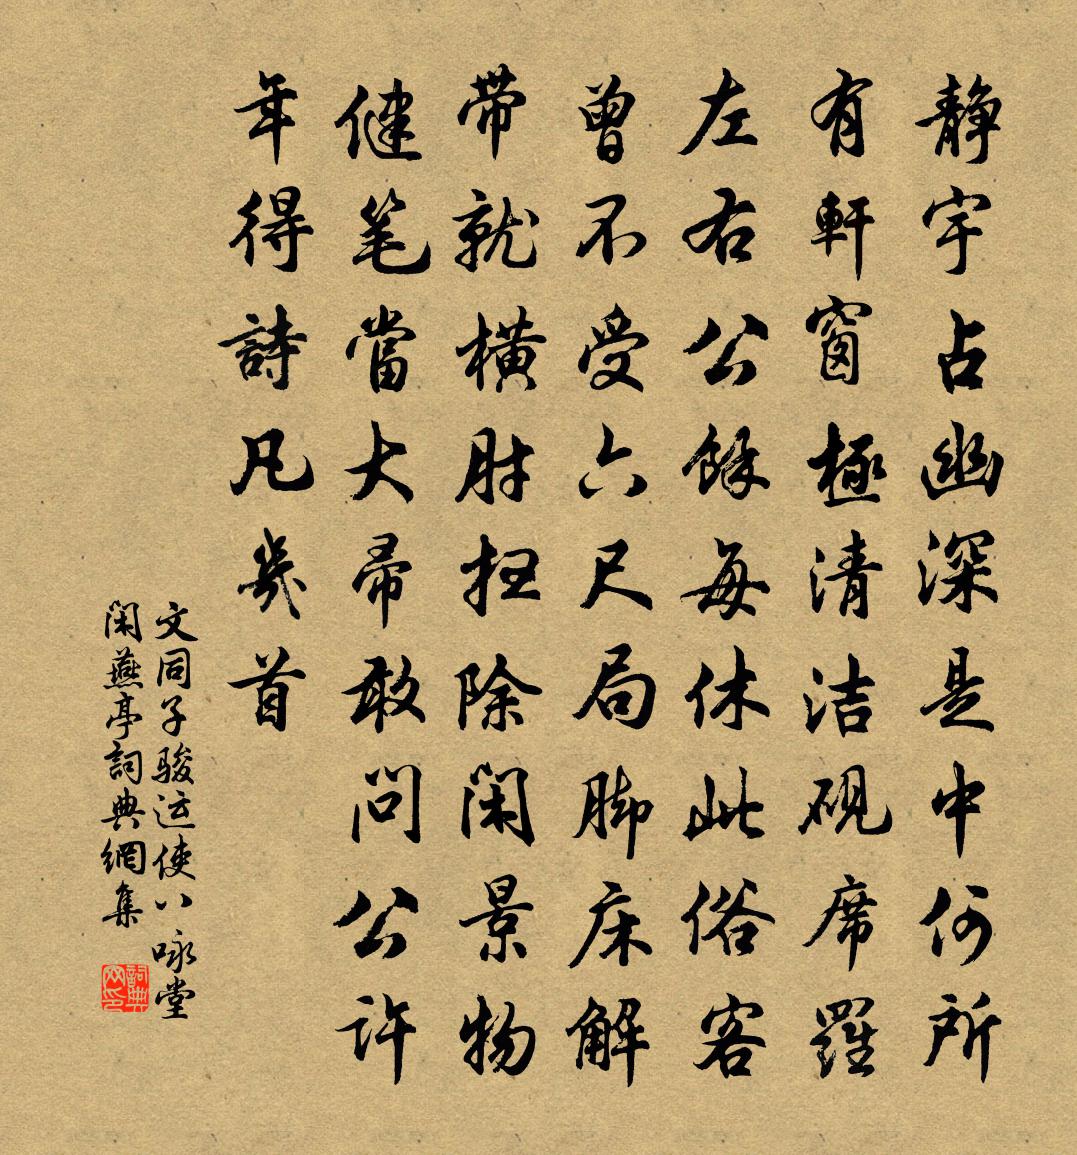 静宇占幽深是中何所
有軒窗極清洁砚席羅
左右公餘每休此俗客
曾不受六尺局脚床解
带就横肘扫除闲景物
健笔當大帚敢问公许
年得詩凡幾首
文同子骏运使八咏堂
闲燕亭詞典網集
詞典网印